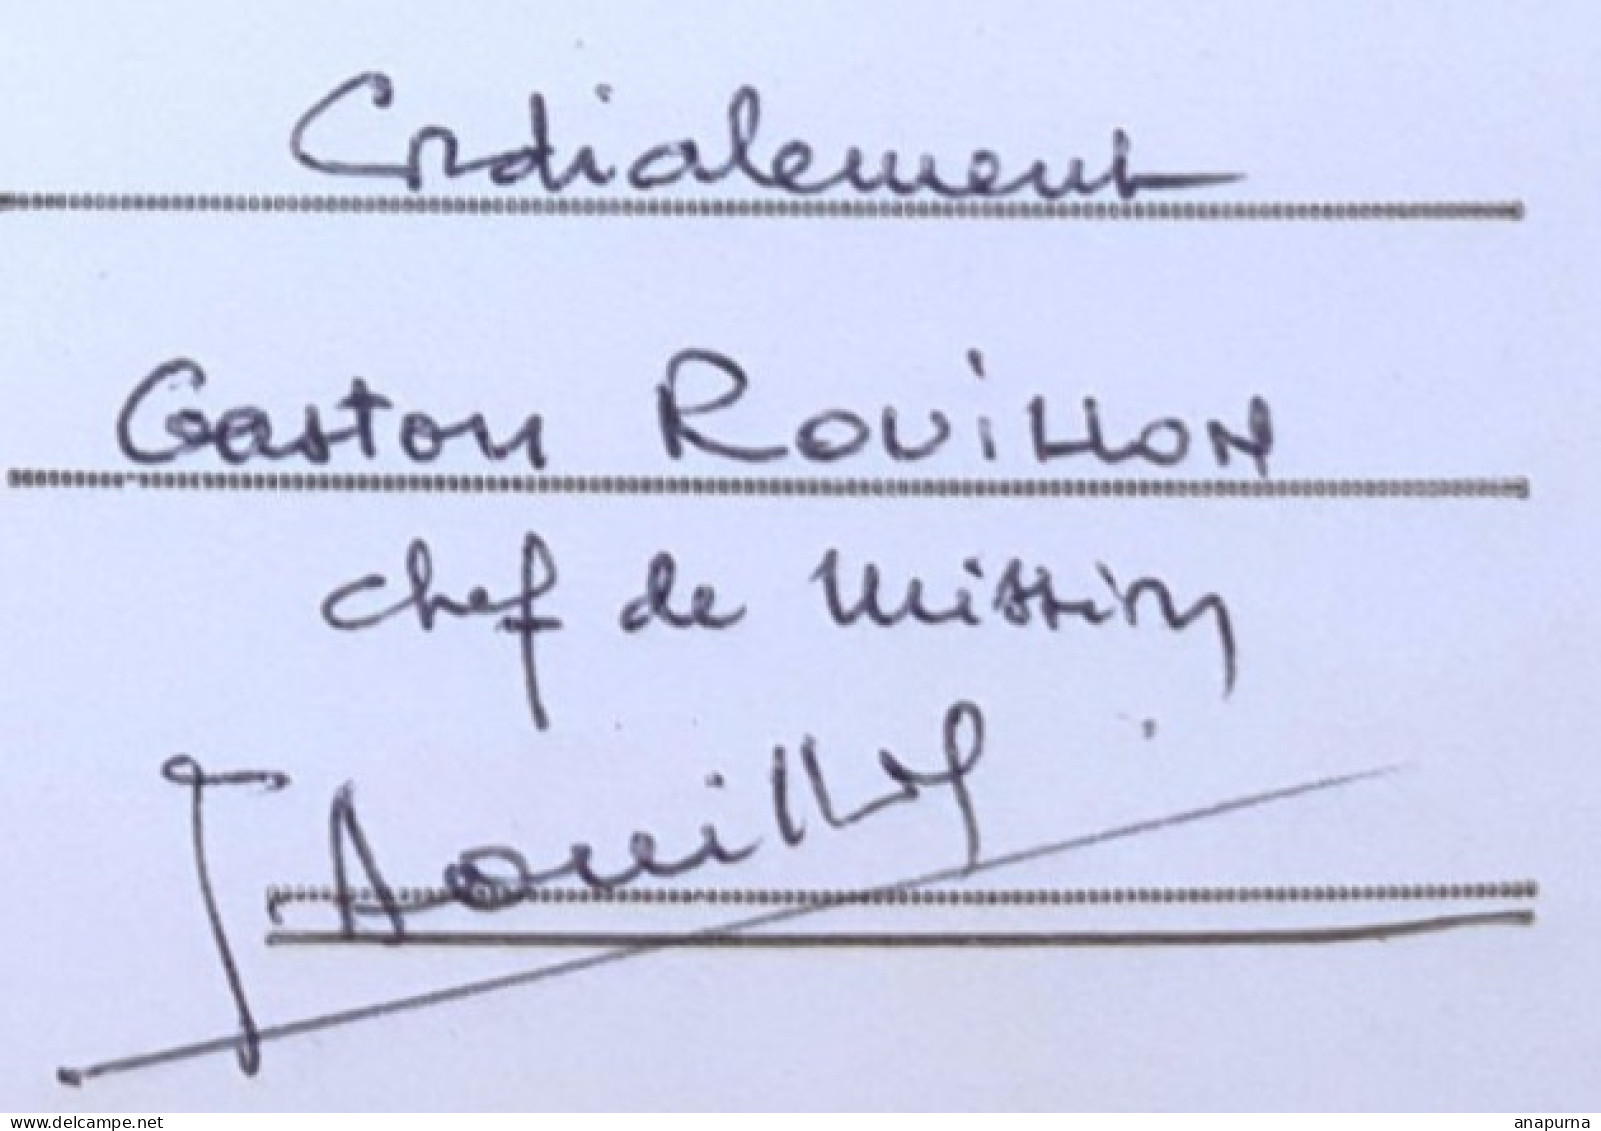 Cordialement
Gaston ROUILLON
chef de mission
Rouillon
delcampe.net
anapurna